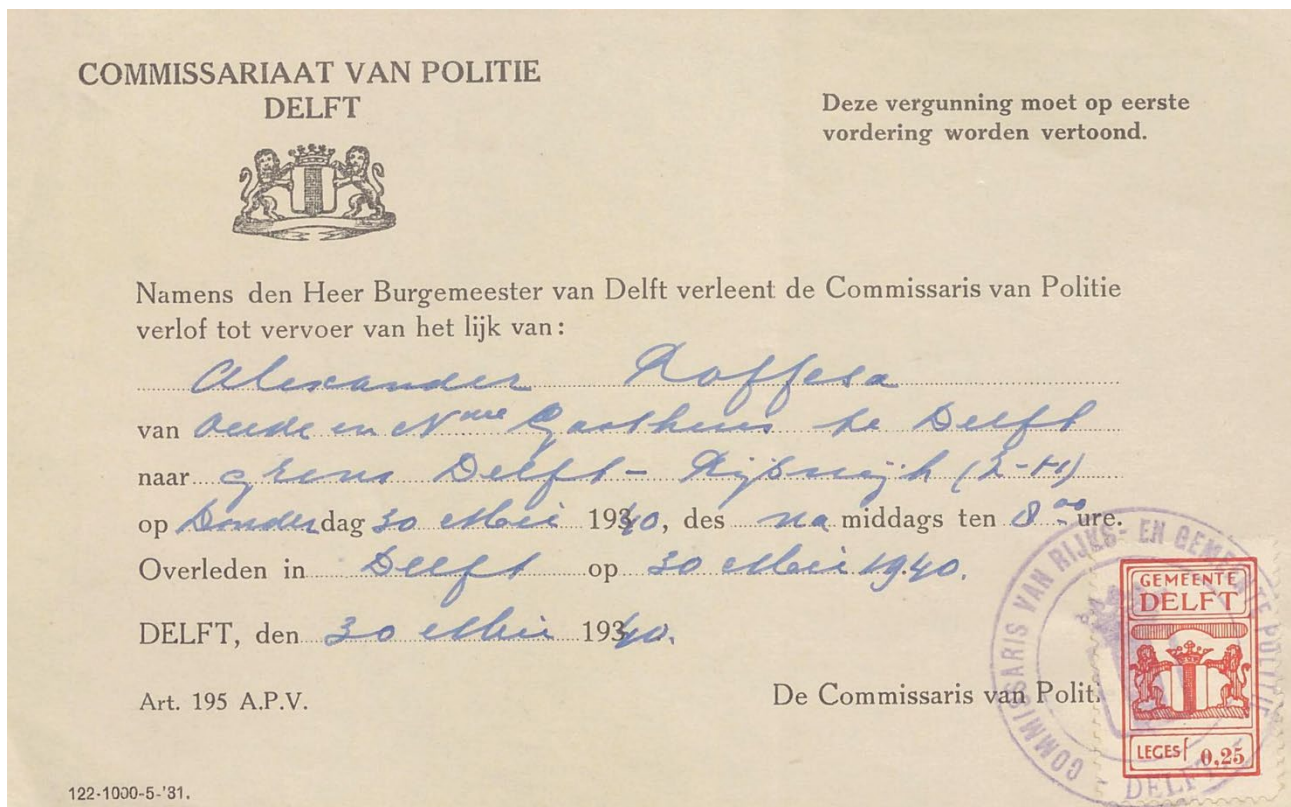 COMMISSARIAAT VAN POLITIE
DELFT
Deze vergunning moet op eerste
vordering worden vertoond.
Namens den Heer Burgemeester van Delft verleent de Commissaris van Politie
verlof tot vervoer van het lijk van:
Alexander Roffesa
van Oude en Nwe Gasthuis te Delft
naar grens Delft - Rijswijk (Z-H)
op Donderdag 30 Mei 1940, des na middags ten 8 00 ure.
Overleden in Delft op 30 Mei 1940.
DELFT, den 30 Mei 1940.
Art. 195 A.P.V.
De Commissaris van Polit.
COMMISSARIS VAN RIJKS- EN GEMEENTE POLITIE
DELFT
GEMEENTE
DELFT
LEGES f 0,25
122-1000-5-'31.